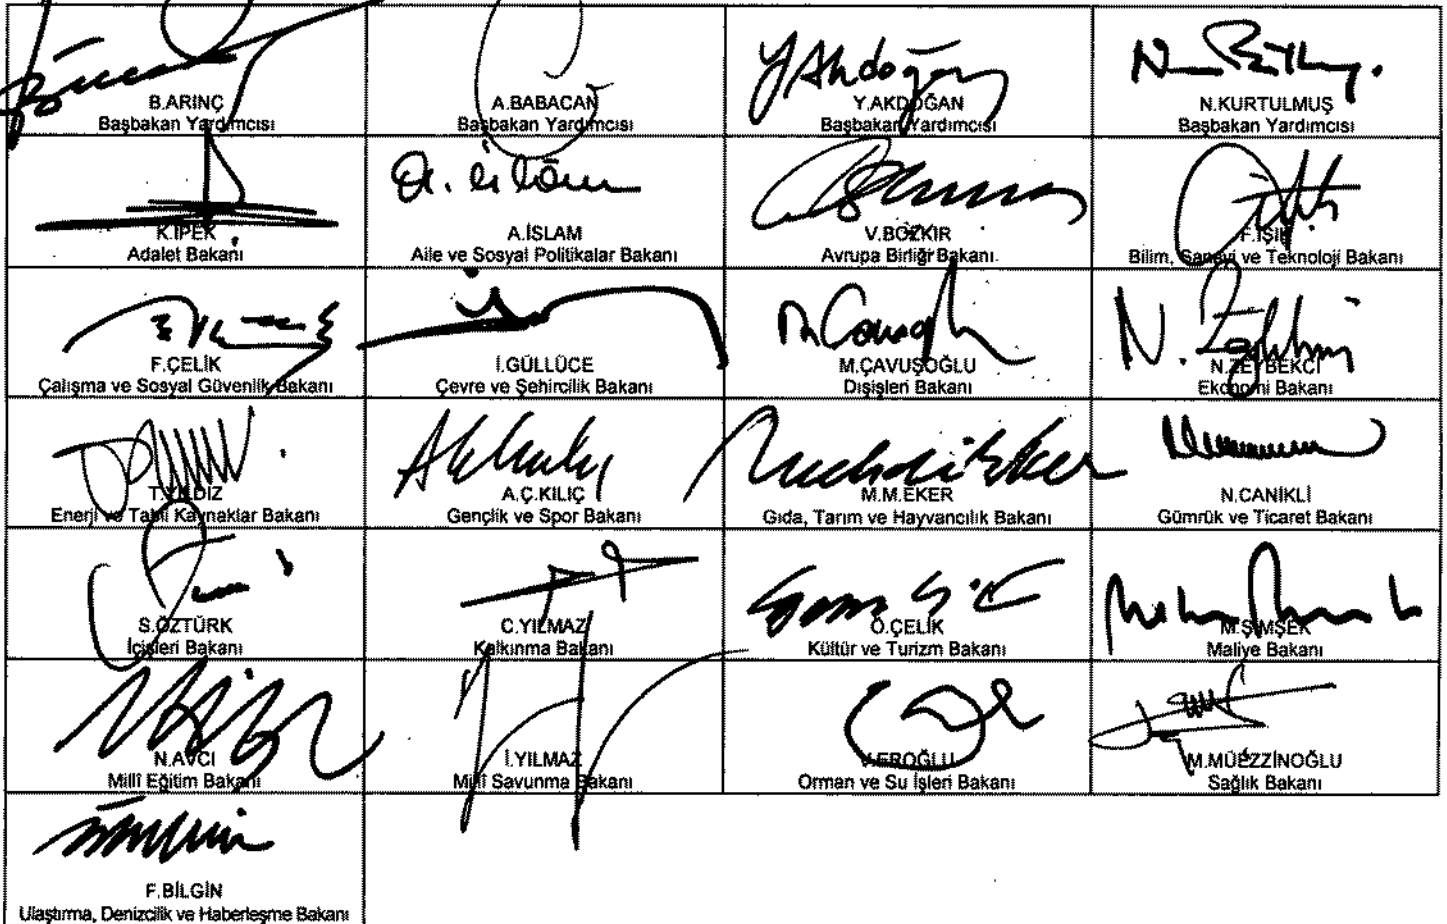 B.ARINÇ
Başbakan Yardımcısı
A.BABACAN
Başbakan Yardımcısı
YAkdoğan
Y.AKDOĞAN
Başbakan Yardımcısı
N.KURTULMUŞ
Başbakan Yardımcısı
K.İPEK
Adalet Bakanı
A.İSLAM
Aile ve Sosyal Politikalar Bakanı
V.BOZKIR
Avrupa Birliği Bakanı
F.IŞIK
Bilim, Sanayi ve Teknoloji Bakanı
F.ÇELİK
Çalışma ve Sosyal Güvenlik Bakanı
İ.GÜLLÜCE
Çevre ve Şehircilik Bakanı
M.ÇAVUŞOĞLU
Dışişleri Bakanı
N.ZEYBEKCİ
Ekonomi Bakanı
T.YILDIZ
Enerji ve Tabii Kaynaklar Bakanı
A.Ç.KILIÇ
Gençlik ve Spor Bakanı
M.M.EKER
Gıda, Tarım ve Hayvancılık Bakanı
N.CANİKLİ
Gümrük ve Ticaret Bakanı
S.ÖZTÜRK
İçişleri Bakanı
C.YILMAZ
Kalkınma Bakanı
Ö.ÇELİK
Kültür ve Turizm Bakanı
M.ŞİMŞEK
Maliye Bakanı
N.AVCI
Millî Eğitim Bakanı
İ.YILMAZ
Millî Savunma Bakanı
V.EROĞLU
Orman ve Su İşleri Bakanı
M.MÜEZZİNOĞLU
Sağlık Bakanı
F.BİLGİN
Ulaştırma, Denizcilik ve Haberleşme Bakanı